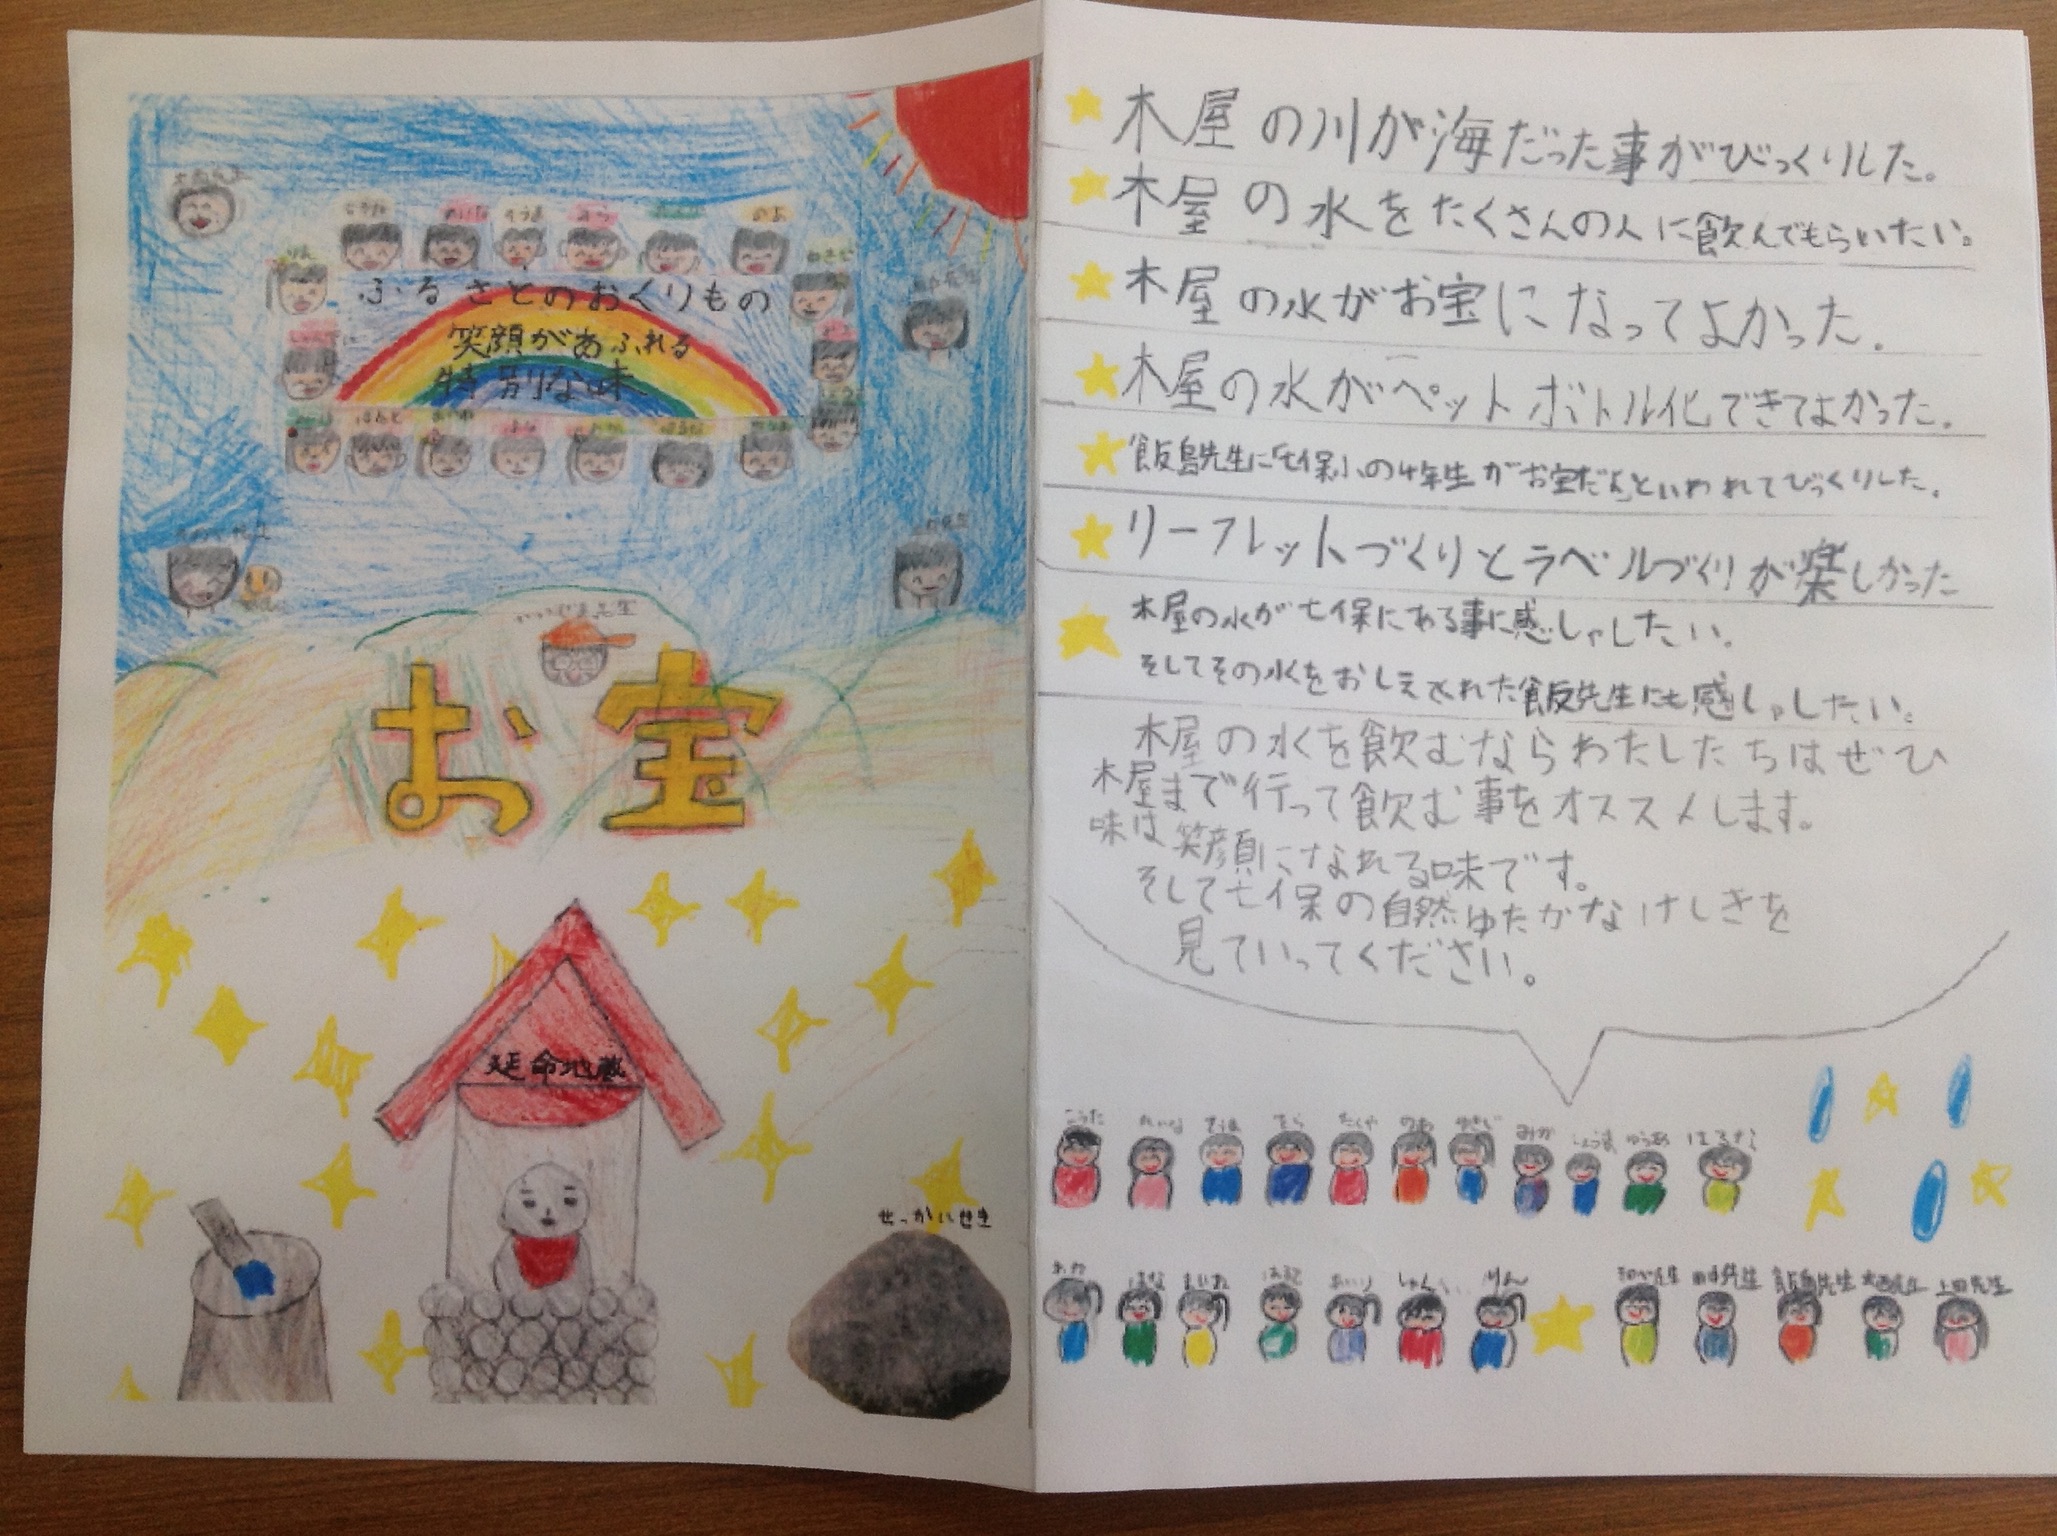 ふるさとのおくりもの
笑顔があふれる
特別な味
お宝
延命地蔵
せっかいせき
木屋の川が海だった事がびっくりした。
木屋の水をたくさんの人に飲んでもらいたい。
木屋の水がお宝になってよかった。
木屋の水がペットボトル化できてよかった。
飯島先生に「七保小の4年生がお宝だよ」といわれてびっくりした。
リーフレットづくりとラベルづくりが楽しかった
木屋の水が七保にある事に感しゃしたい。
そしてその水をおしえてくれた飯島先生にも感しゃしたい。
木屋の水を飲むならわたしたちはぜひ
木屋まで行って飲む事をオススメします。
味は笑顔になれる味です。
そして七保の自然ゆたかなけしきを
見ていってください。
こうた れいな そうま そら たくや のあ ゆきじ みか しょうま ゆうあ はるな
はな はると あいり りん 飯島先生 大西先生 上田先生